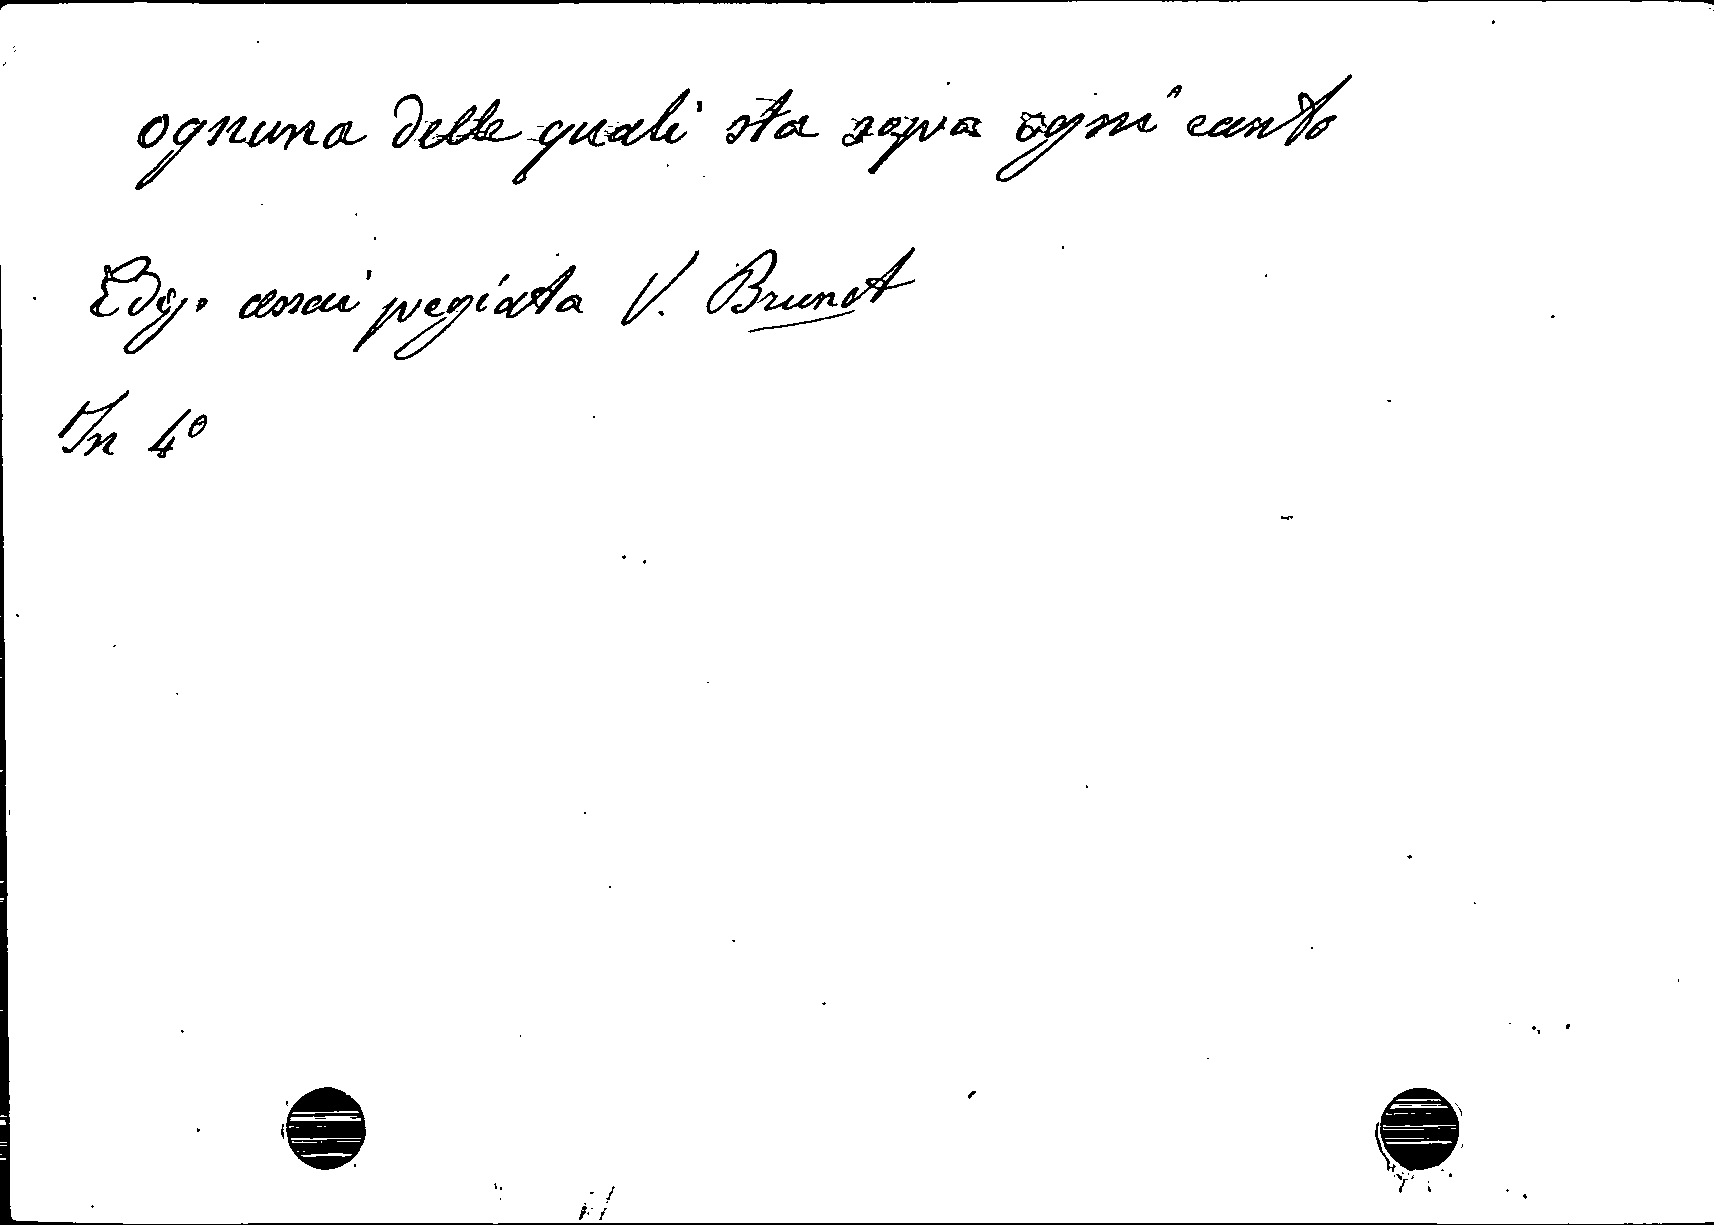 ognuna delle quali sta sopra ogni canto
Ediz. assai pregiata V. Brunet
In 4º